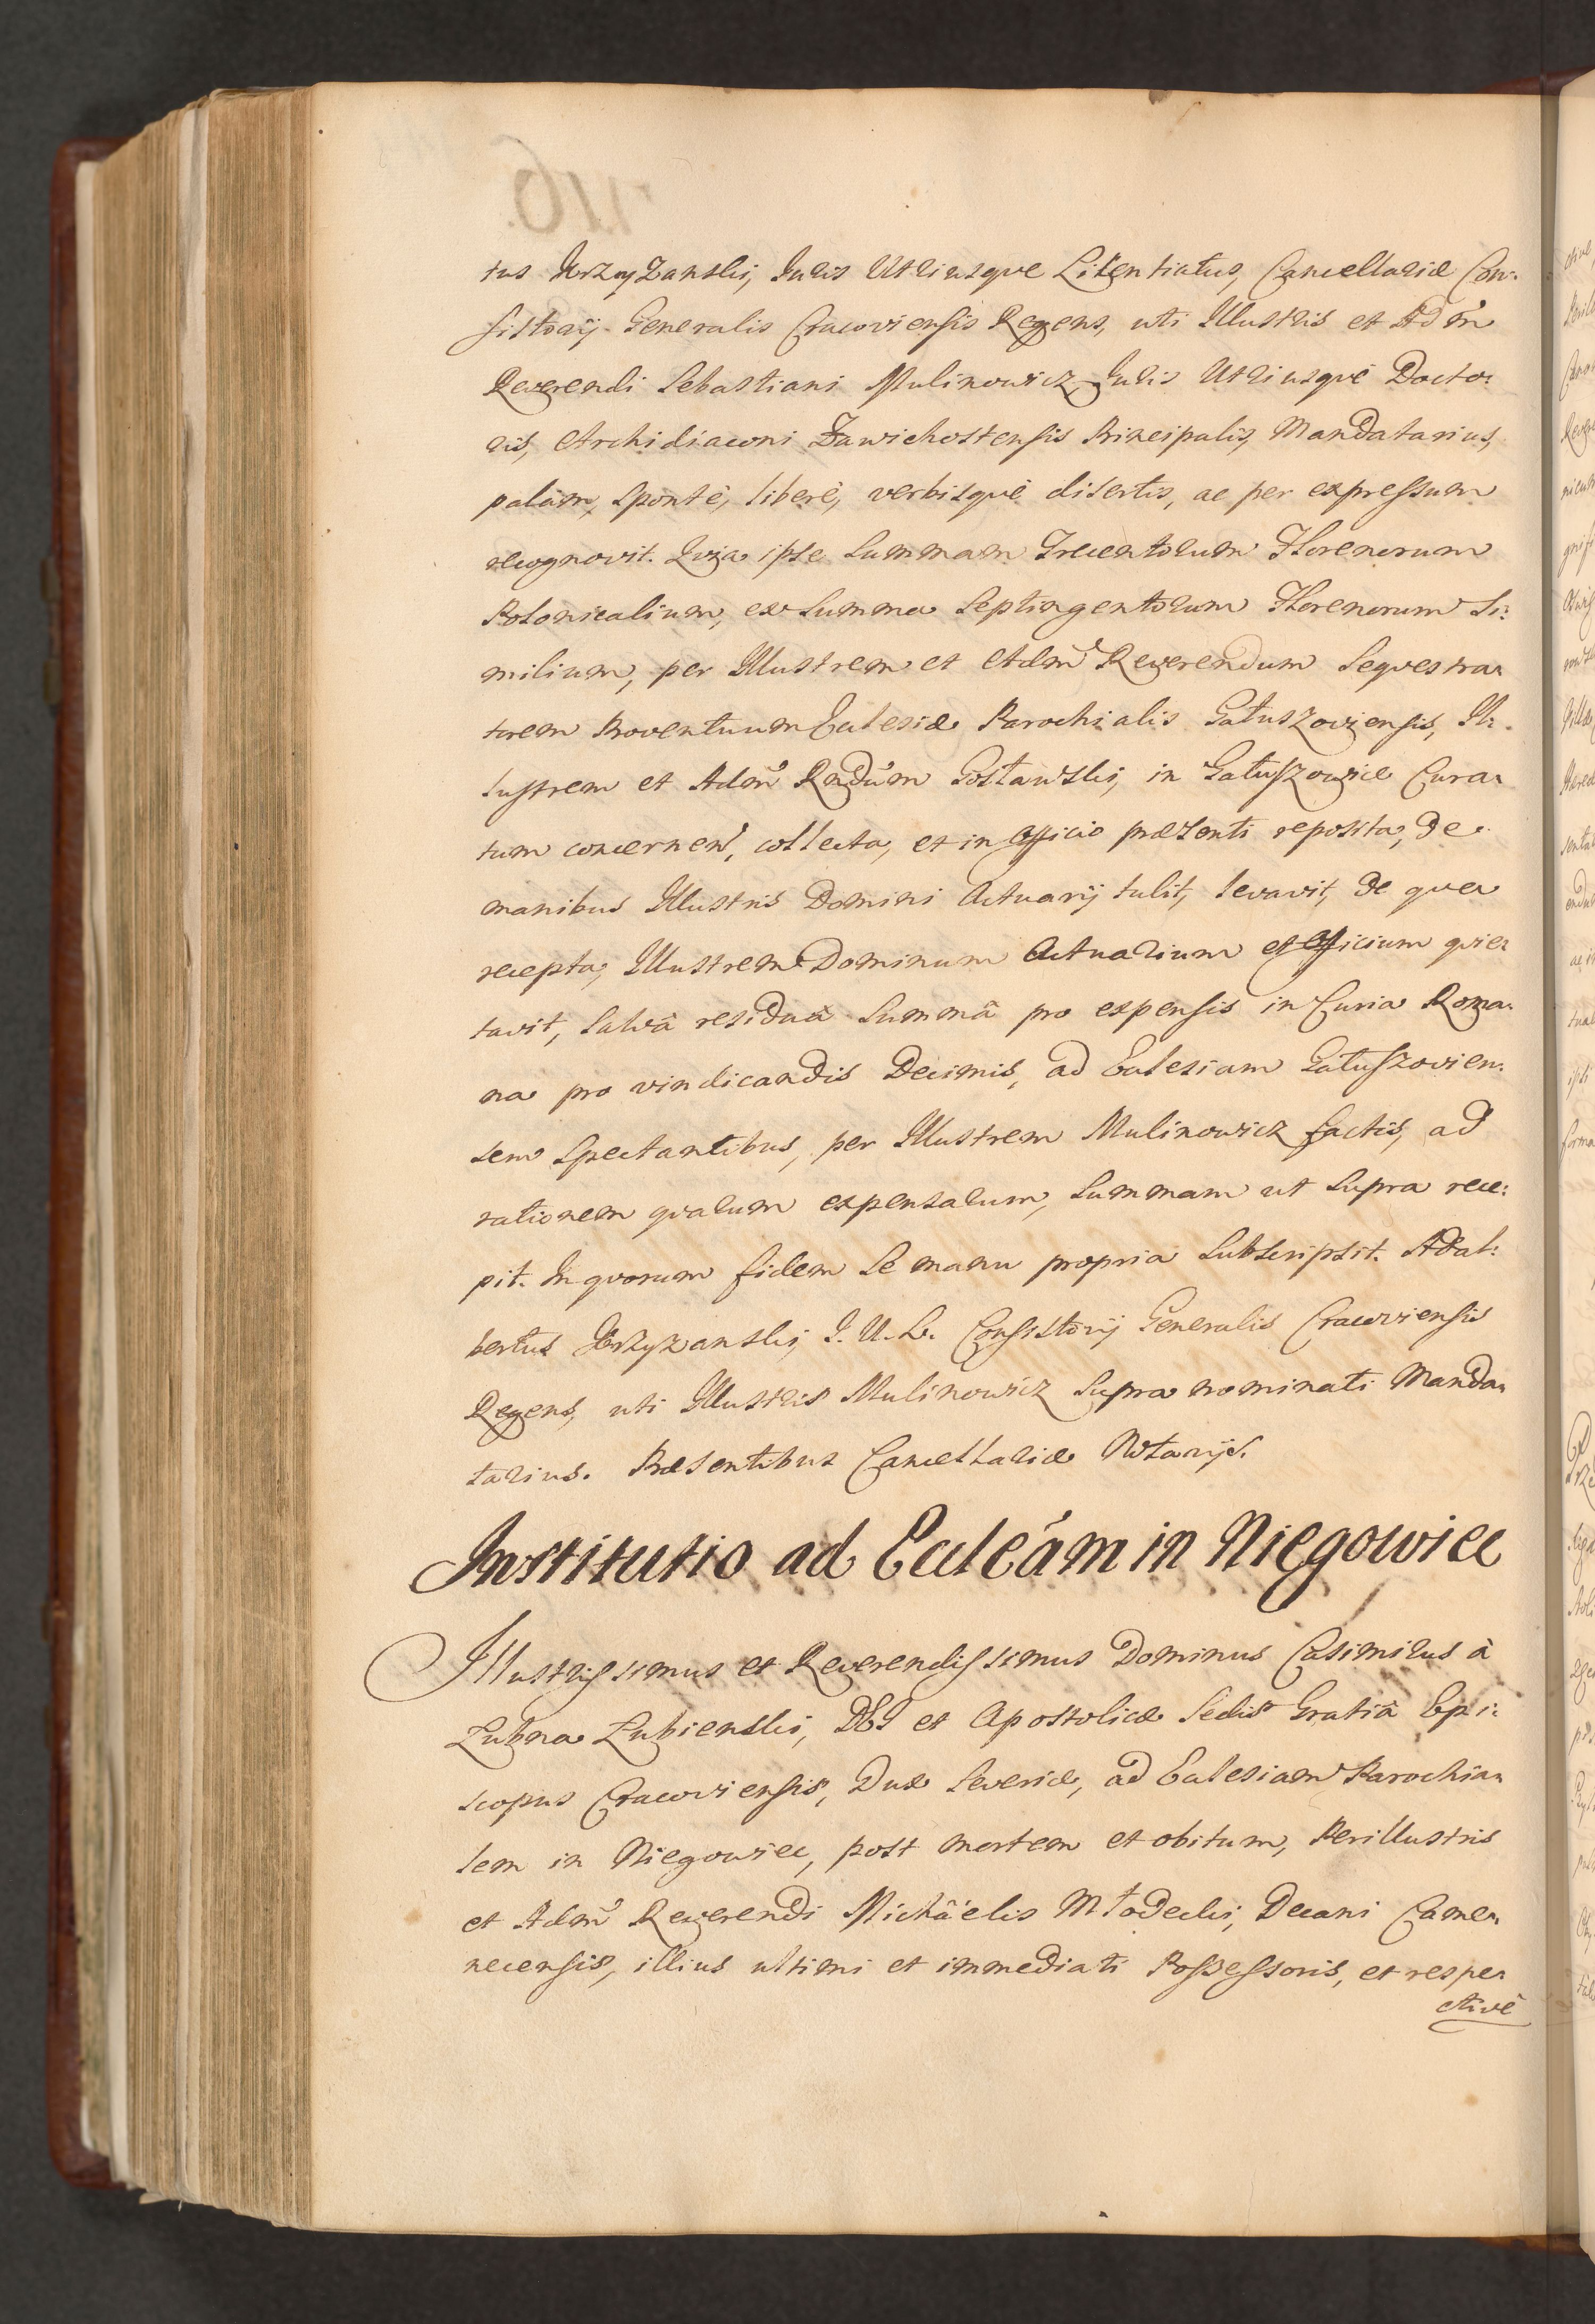 tus Krzyżanski, Juris Utriusque Licentiatus, Cancellariæ Con:
sistorij Generalis Cracoviensis Regens, uti Illustris et Adm̃
Reverendi Sebastiani Mulinowicz, Juris Utriusquè Docto:
ris, Archidiaconi Zawichostensis Principalis, Mandatarius,
palàm, spontè, liberè, verbisquè disertis, ac per expressum
recognovit. Quia ipse Summam Trecentorum Florenorum
Polonicalium, ex Summa Septingentorum Florenorum Si:
milium, per Illustrem et Adm̃ Reverendum Sequestra:
torem Proventuum Ecclesiæ Parochialis Gałuszoviensis, Il:
lustrem et Adm̃ Rndũm Gosławski, in Gałuszowice Cura:
tum concernen̄, collecta, et in Officio præsenti reposita, de
manibus Illustris Domini Actuarij tulit, levavit, de qua
recepta, Illustrem Dominum Actuarium et Officium quie:
tavit, salvâ residuâ Summâ pro expensis in Curia Roma:
na pro vindicandis Decimis, ad Ecclesiam Gałuszovien:
sem Spectantibus, per Illustrem Mulinowicz factis, ad
rationem quarum expensarum, Summam ut supra rece:
pit. In quorum fidem se manu propria Subscripsit. Adal:
bertus Krzyzanski, J. U. L. Consistorij Generalis Cracoviensis
Regens, uti Illustris Mulinowicz supra nominati Manda:
tarius. Præsentibus Cancellariæ Notarijs.
Institutio ad Eccleãm in Niegowiec
Illustrissimus et Reverendissimus Dominus Casimirus à
Łubna Łubienski, DEI et Apostolicæ Sedis Gratiâ Epi:
scopus Cracoviensis, Dux Severiæ, ad Ecclesiam Parochia:
lem in Niegowiec, post mortem et obitum, Perillustris
et Adm̃ Reverendi Michaëlis Młodecki, Decani Came:
necensis, illius ultimi et immediati Possessoris, et respe:
ctivè